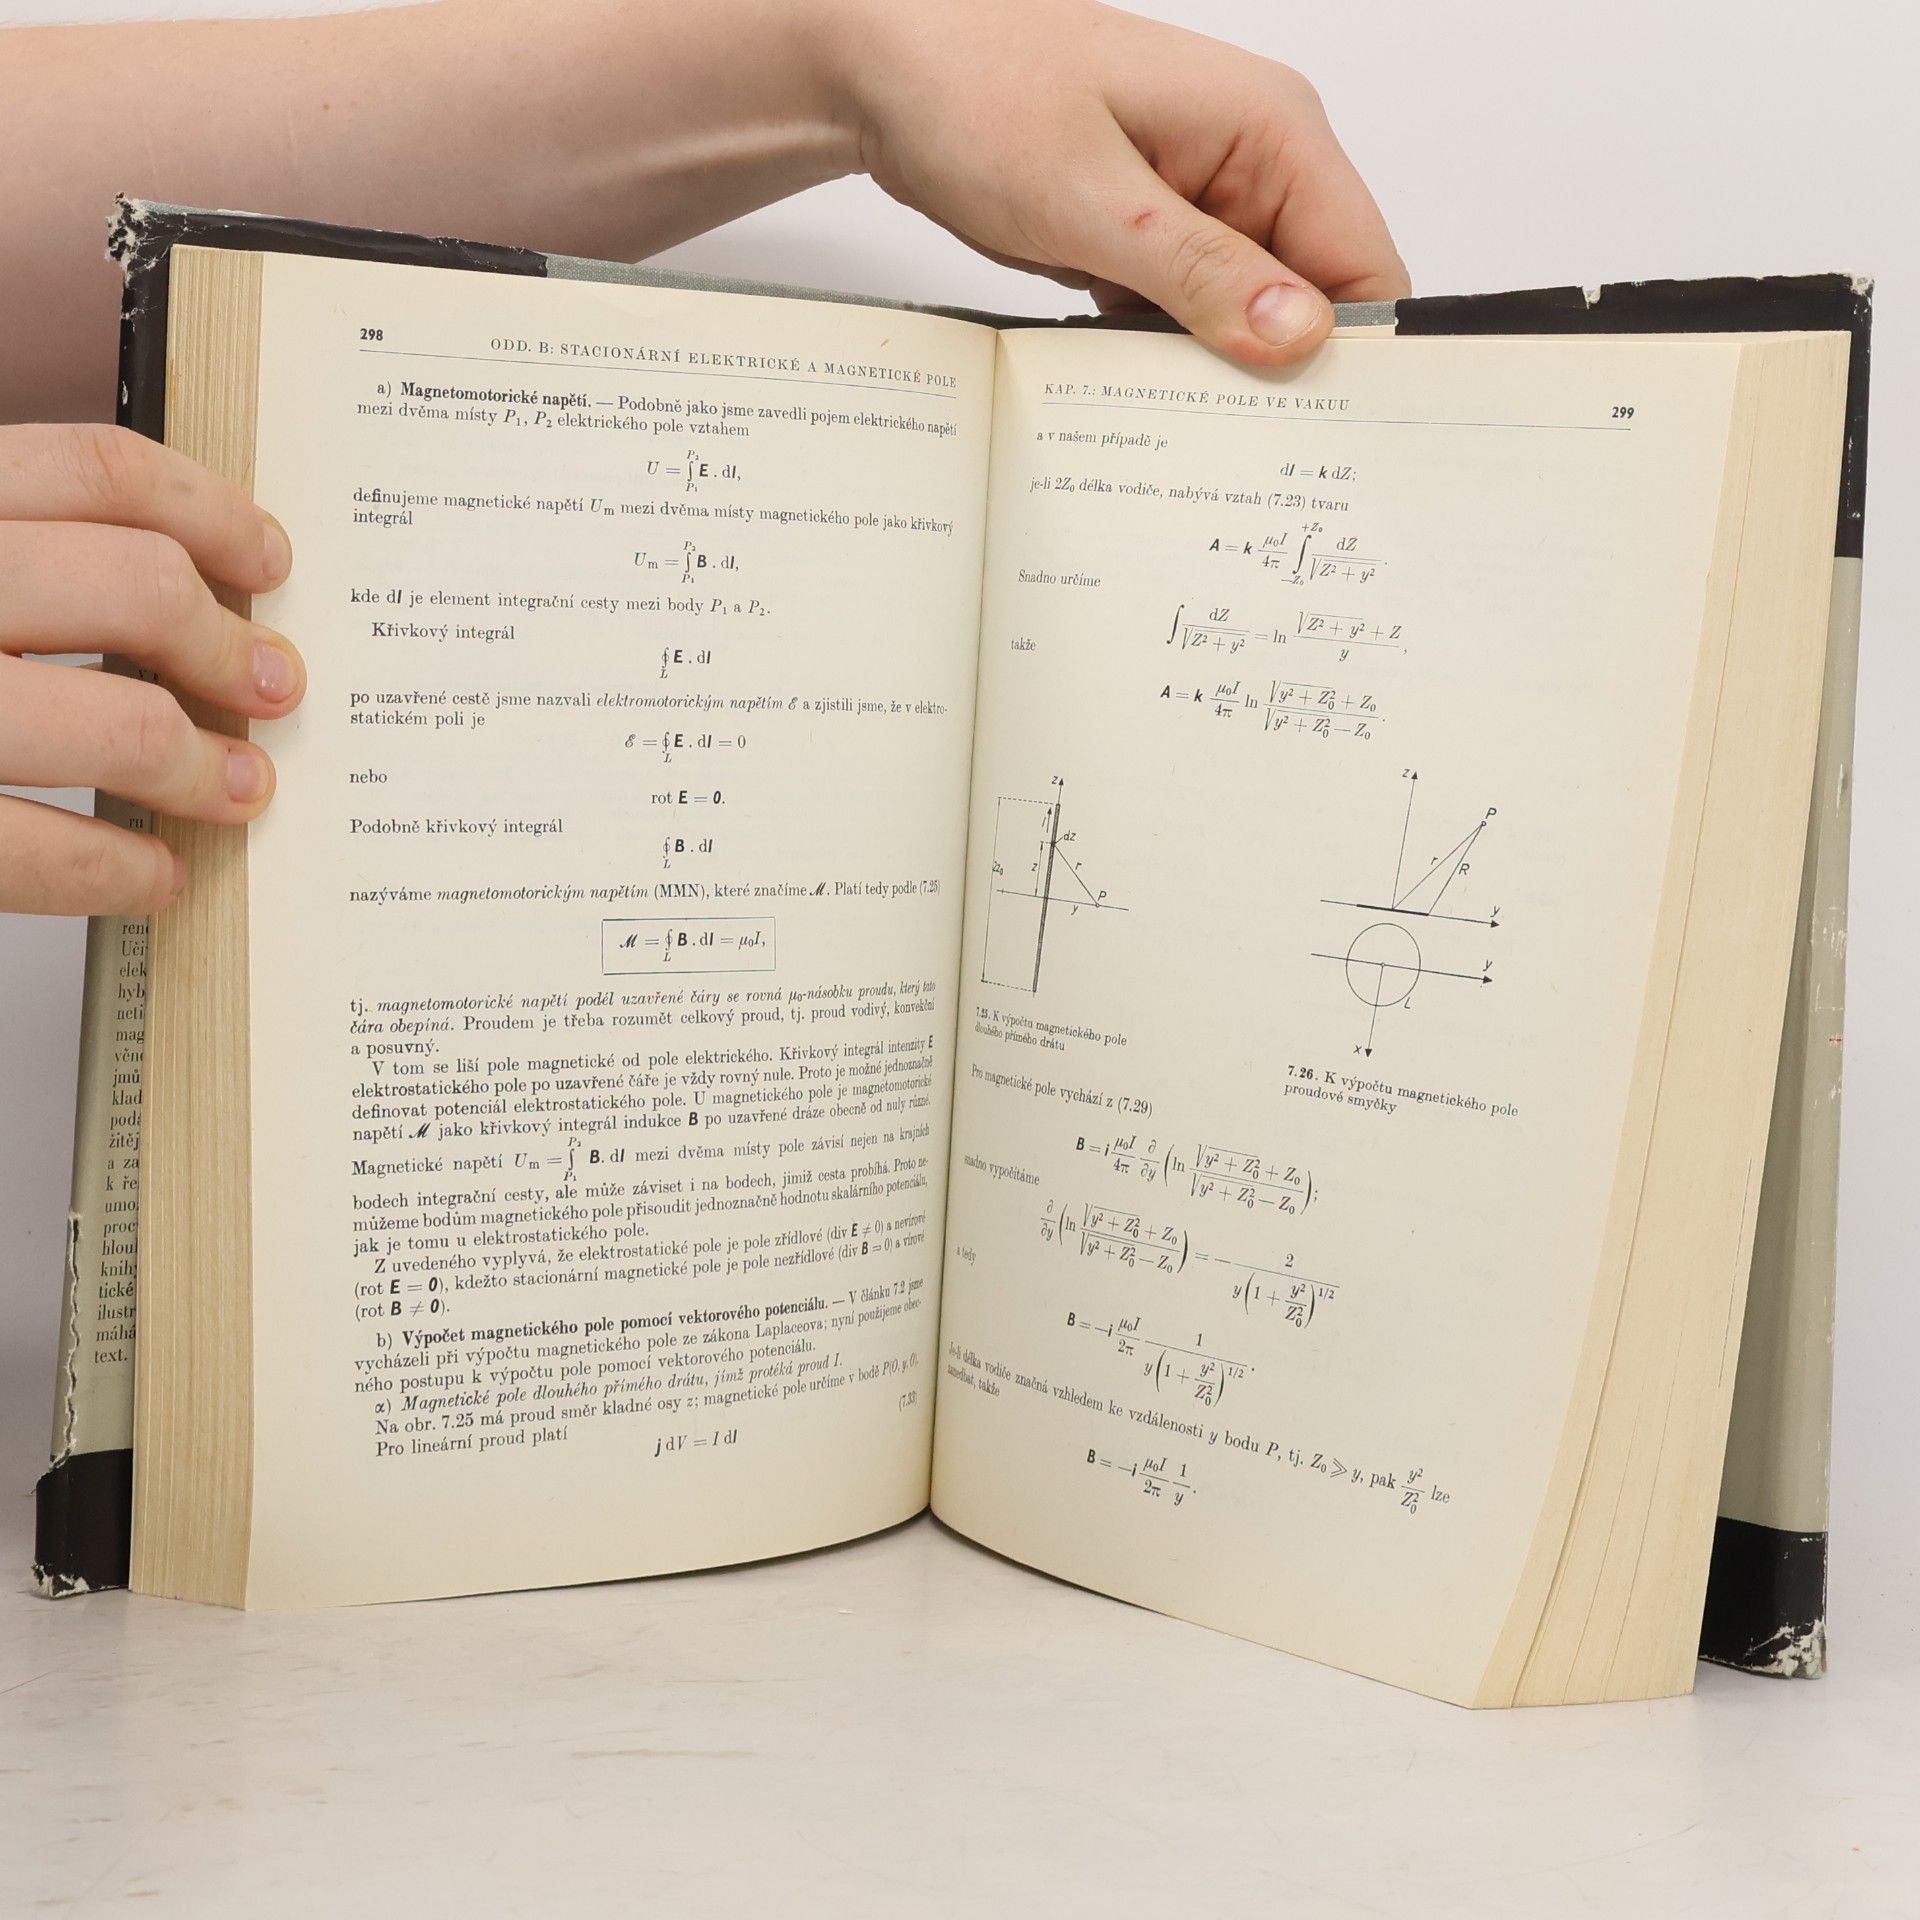 298
ODD. B: STACIONÁRNÍ ELEKTRICKÉ A MAGNETICKÉ POLE
a) Magnetomotorické napětí. — Podobně jako jsme zavedli pojem elektrického napětí
mezi dvěma místy P₁, P₂ elektrického pole vztahem
U = ∫_{P₁}^{P₂} E . dl,
definujeme magnetické napětí Uₘ mezi dvěma místy magnetického pole jako křivkový
integrál
Uₘ = ∫_{P₁}^{P₂} B . dl,
kde dl je element integrační cesty mezi body P₁ a P₂.
Křivkový integrál
∮_L E . dl
po uzavřené cestě jsme nazvali elektromotorickým napětím ℰ a zjistili jsme, že v elektro-
statickém poli je
ℰ = ∮_L E . dl = 0
nebo
rot E = 0.
Podobně křivkový integrál
∮_L B . dl
nazýváme magnetomotorickým napětím (MMN), které značíme ℳ. Platí tedy podle (7.25)
ℳ = ∮_L B . dl = μ₀I,
tj. magnetomotorické napětí podél uzavřené čáry se rovná μ₀-násobku proudu, který tato
čára obepíná. Proudem je třeba rozumět celkový proud, tj. proud vodivý, konvekční
a posuvný.
V tom se liší pole magnetické od pole elektrického. Křivkový integrál intenzity E
elektrostatického pole po uzavřené čáře je vždy rovný nule. Proto je možné jednoznačně
definovat potenciál elektrostatického pole. U magnetického pole je magnetomotorické
napětí ℳ jako křivkový integrál indukce B po uzavřené dráze obecně od nuly různé.
Magnetické napětí Uₘ = ∫_{P₁}^{P₂} B. dl mezi dvěma místy pole závisí nejen na krajních
bodech integrační cesty, ale může záviset i na bodech, jimiž cesta probíhá. Proto ne-
můžeme bodům magnetického pole přisoudit jednoznačně hodnotu skalárního potenciálu,
jak je tomu u elektrostatického pole.
Z uvedeného vyplývá, že elektrostatické pole je pole zřídlové (div E ≠ 0) a nevírové
(rot E = 0), kdežto stacionární magnetické pole je pole nezřídlové (div B = 0) a vírové
(rot B ≠ 0).
b) Výpočet magnetického pole pomocí vektorového potenciálu. — V článku 7.2 jsme
vycházeli při výpočtu magnetického pole ze zákona Laplaceova; nyní použijeme obec-
ného postupu k výpočtu pole pomocí vektorového potenciálu.
α) Magnetické pole dlouhého přímého drátu, jímž protéká proud I.
Na obr. 7.25 má proud směr kladné osy z; magnetické pole určíme v bodě P(0, y, 0).
Pro lineární proud platí
j dV = I dl (7.33)
KAP. 7.: MAGNETICKÉ POLE VE VAKUU
299
a v našem případě je
dl = k dZ;
je-li 2Z₀ délka vodiče, nabývá vztah (7.23) tvaru
A = k μ₀I/4π ∫_{−Z₀}^{+Z₀} dZ/√(Z² + y²).
Snadno určíme
∫ dZ/√(Z² + y²) = ln (√(Z² + y²) + Z)/y,
takže
A = k μ₀I/4π ln (√(y² + Z₀²) + Z₀)/(√(y² + Z₀²) — Z₀).
z
I
dz
2z₀
z
r
P
y
7.25. K výpočtu magnetického pole
dlouhého přímého drátu
z
P
r
R
y
y
L
x
7.26. K výpočtu magnetického pole
proudové smyčky
Pro magnetické pole vychází z (7.29)
B = i μ₀I/4π ∂/∂y (ln (√(y² + Z₀²) + Z₀)/(√(y² + Z₀²) — Z₀));
snadno vypočítáme
∂/∂y (ln (√(y² + Z₀²) + Z₀)/(√(y² + Z₀²) — Z₀)) = — 2/(y(1 + y²/Z₀²)^{1/2})
a tedy
B = —i μ₀I/2π 1/(y(1 + y²/Z₀²)^{1/2}).
Je-li délka vodiče značná vzhledem ke vzdálenosti y bodu P, tj. Z₀ ⩾ y, pak y²/Z₀² lze
zanedbat, takže
B = —i μ₀I/2π 1/y.
ru
Uči
elek
hyb
mag
jmů
klad
podá
a za
k ře
umo
proc
hlou
knih
tické
ilustr
máhá
text.